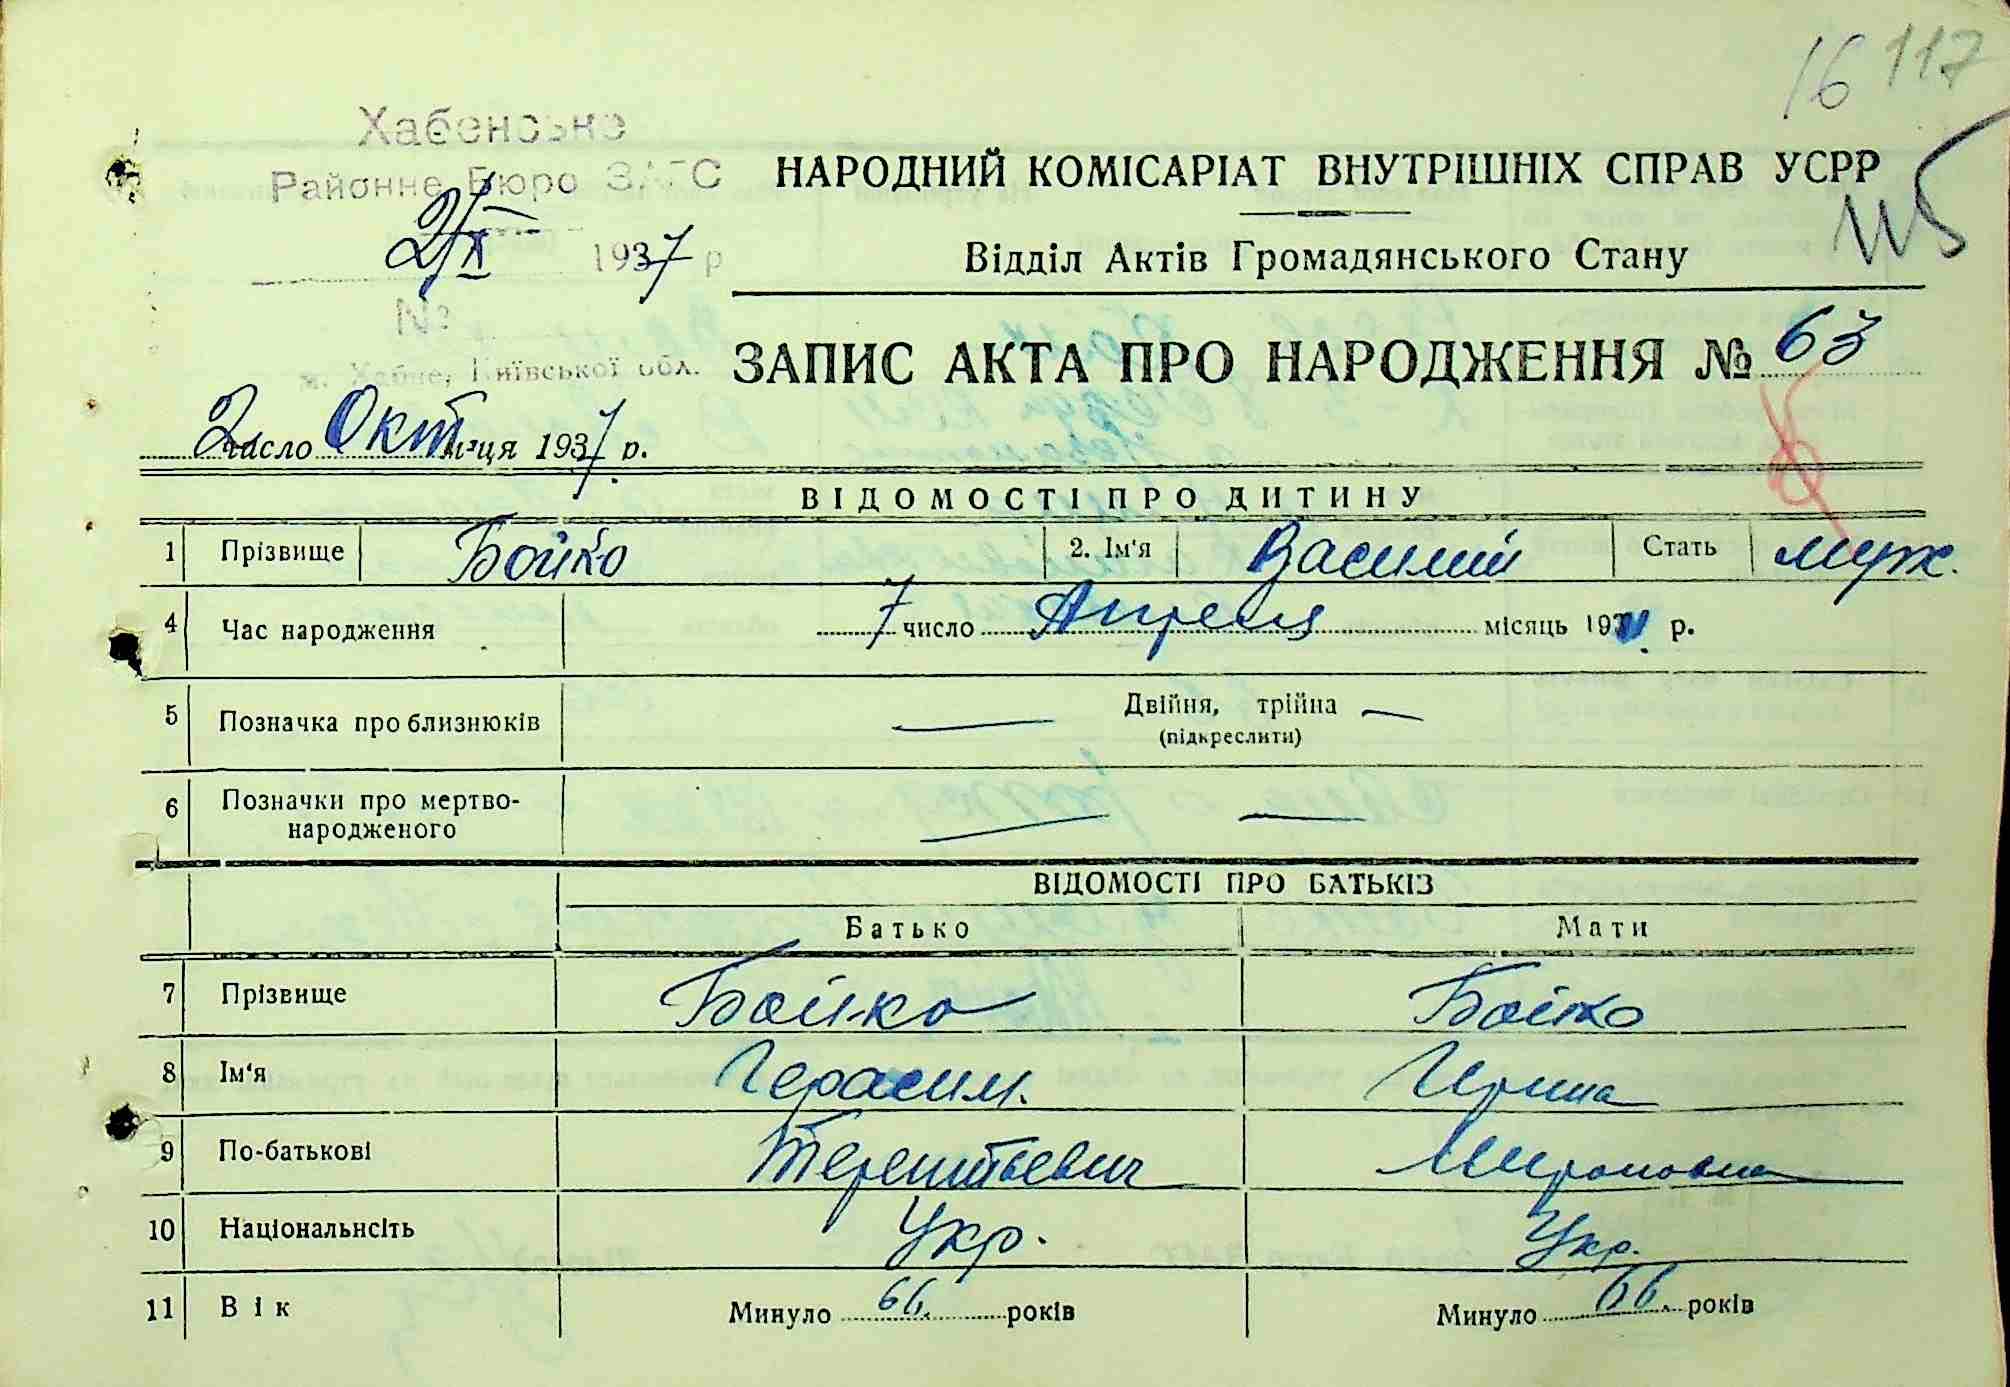 16 117
115
Хабенське
Районне Бюро ЗАГС
2/X 1937 р
№
м. Хабне, Київської обл.
НАРОДНИЙ КОМІСАРІАТ ВНУТРІШНІХ СПРАВ УСРР
Відділ Актів Громадянського Стану
ЗАПИС АКТА ПРО НАРОДЖЕННЯ № 63
2 число Окт місяця 1937 р.
ВІДОМОСТІ ПРО ДИТИНУ
1 Прізвище Бойко 2. Ім'я Василий Стать муж.
4 Час народження 7 число Апреля місяць 19 р.
5 Позначка про близнюків — Двійня, трійна —
(підкреслити)
6 Позначки про мертво-
народженого — —
ВІДОМОСТІ ПРО БАТЬКІВ
Батько Мати
7 Прізвище Бойко Бойко
8 Ім'я Герасим. Ирина
9 По-батькові Терентьевич Мироновна
10 Національнсіть Укр. Укр.
11 Вік Минуло 66 років Минуло 66 років